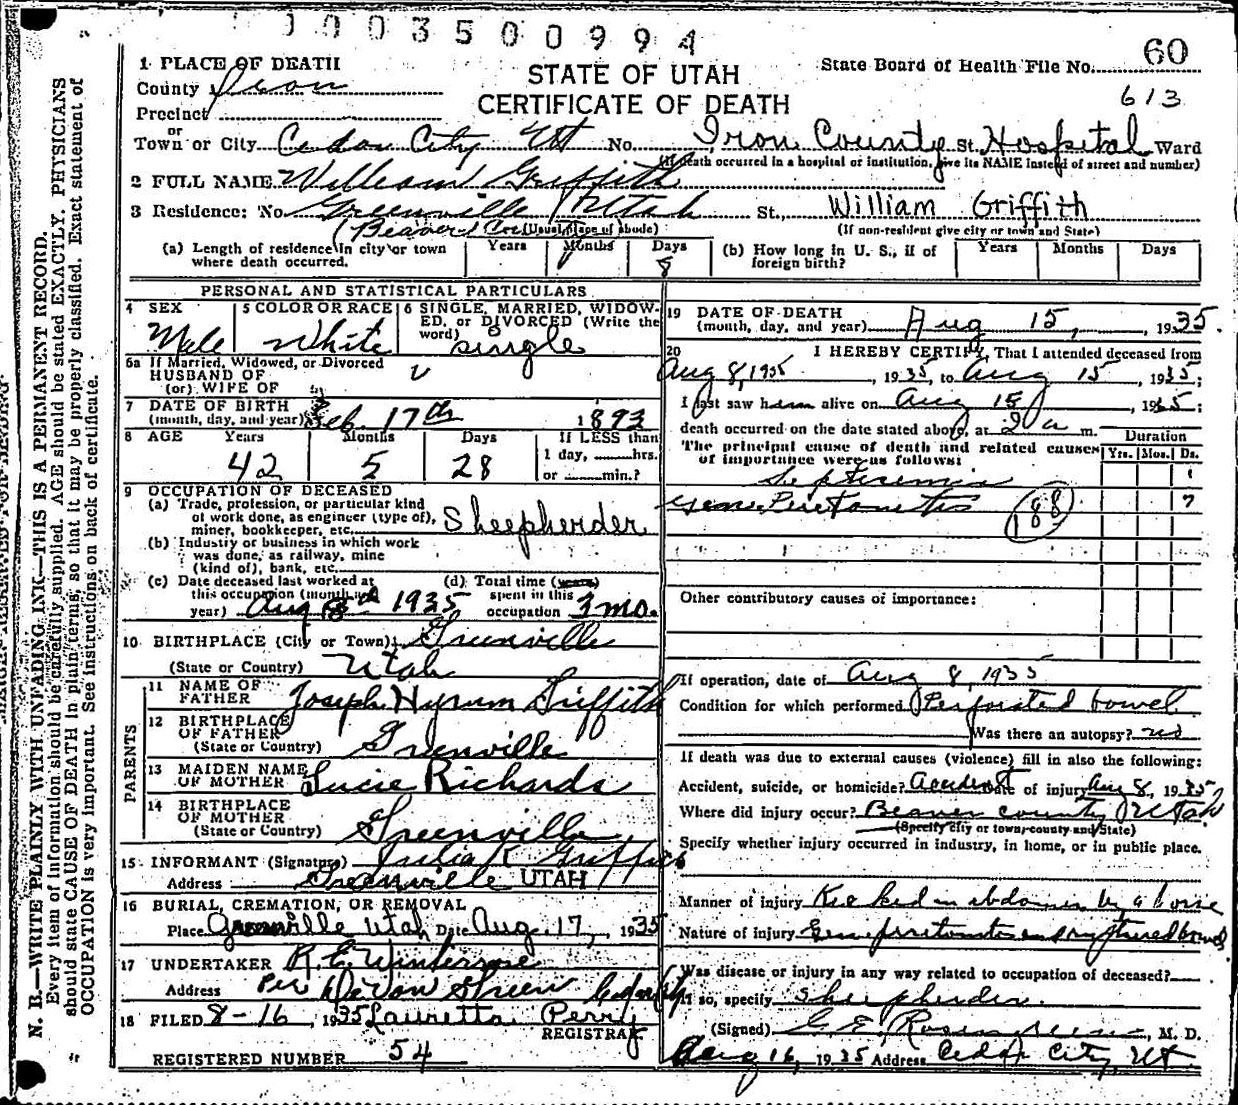 0003500994
60
1 PLACE OF DEATH
STATE OF UTAH
State Board of Health File No.
County Iron
CERTIFICATE OF DEATH
613
Precinct
or
Town or City Cedar City Ut No. Iron County St. Hospital Ward
(If death occurred in a hospital or institution, give its NAME instead of street and number)
2 FULL NAME William Griffith
3 Residence: No. Greenville Utah St., William Griffith
(Beaver Co. (Usual place of abode) (If non-resident give city or town and State)
(a) Length of residence in city or town where death occurred. Years Months Days 8
(b) How long in U. S., if of foreign birth? Years Months Days
PERSONAL AND STATISTICAL PARTICULARS
4 SEX Male
5 COLOR OR RACE White
6 SINGLE, MARRIED, WIDOWED, or DIVORCED (Write the word) single
6a If Married, Widowed, or Divorced
HUSBAND OF
(or) WIFE OF
7 DATE OF BIRTH
(month, day, and year) Feb. 17th 1893
8 AGE Years Months Days If LESS than
42 5 28 1 day, hrs.
or min.?
9 OCCUPATION OF DECEASED
(a) Trade, profession, or particular kind
of work done, as engineer (type of),
miner, bookkeeper, etc. Sheepherder
(b) Industry or business in which work
was done, as railway, mine
(kind of), bank, etc.
(c) Date deceased last worked at
this occupation (month and
year) Aug 8th 1935
(d) Total time (years)
spent in this
occupation 3 mo.
10 BIRTHPLACE (City or Town) Greenville
(State or Country) Utah
PARENTS
11 NAME OF
FATHER Joseph Hyrum Griffith
12 BIRTHPLACE
OF FATHER
(State or Country) Greenville
13 MAIDEN NAME
OF MOTHER Lucie Richards
14 BIRTHPLACE
OF MOTHER
(State or Country) Greenville
15 INFORMANT (Signature) Julia K Griffith
Address Greenville UTAH
16 BURIAL, CREMATION, OR REMOVAL
Place Greenville Utah Date Aug. 17, 1935
17 UNDERTAKER R. E. Winterrose
Address Per DeVon Green Cedar City
18 FILED 8-16, 1935 Lauretta Perry
REGISTRAR
REGISTERED NUMBER 54
19 DATE OF DEATH
(month, day, and year) Aug 15, 1935.
20 I HEREBY CERTIFY, That I attended deceased from
Aug 8, 1935, 1935, to Aug 15, 1935;
I last saw him alive on Aug 15, 1935;
death occurred on the date stated above, at 2 a m.
The principal cause of death and related causes
of importance were as follows:
Duration
Yrs. Mos. Ds.
Septicemia
Gen. Peritonitis 7
188
Other contributory causes of importance:
If operation, date of Aug 8, 1935
Condition for which performed Perforated bowel
Was there an autopsy? no
If death was due to external causes (violence) fill in also the following:
Accident, suicide, or homicide? Accident Date of injury Aug 8, 1935
Where did injury occur? Beaver county Utah
(Specify city or town, county and State)
Specify whether injury occurred in industry, in home, or in public place.
Manner of injury Kicked in abdomen by a horse
Nature of injury Gen peritonitis ruptured bowel
Was disease or injury in any way related to occupation of deceased?
If so, specify sheepherder.
(Signed) G. E. Rosengreen, M. D.
Aug 16, 1935 Address Cedar City, Ut.
N. B.—WRITE PLAINLY WITH UNFADING INK—THIS IS A PERMANENT RECORD.
Every item of information should be carefully supplied. AGE should be stated EXACTLY. PHYSICIANS
should state CAUSE OF DEATH in plain terms, so that it may be properly classified. Exact statement of
OCCUPATION is very important. See instructions on back of certificate.